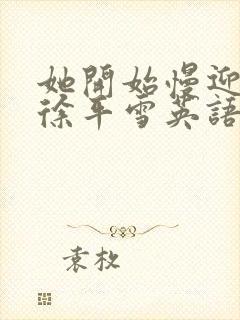 她開始慢迎
徐平雪英語
袁枚